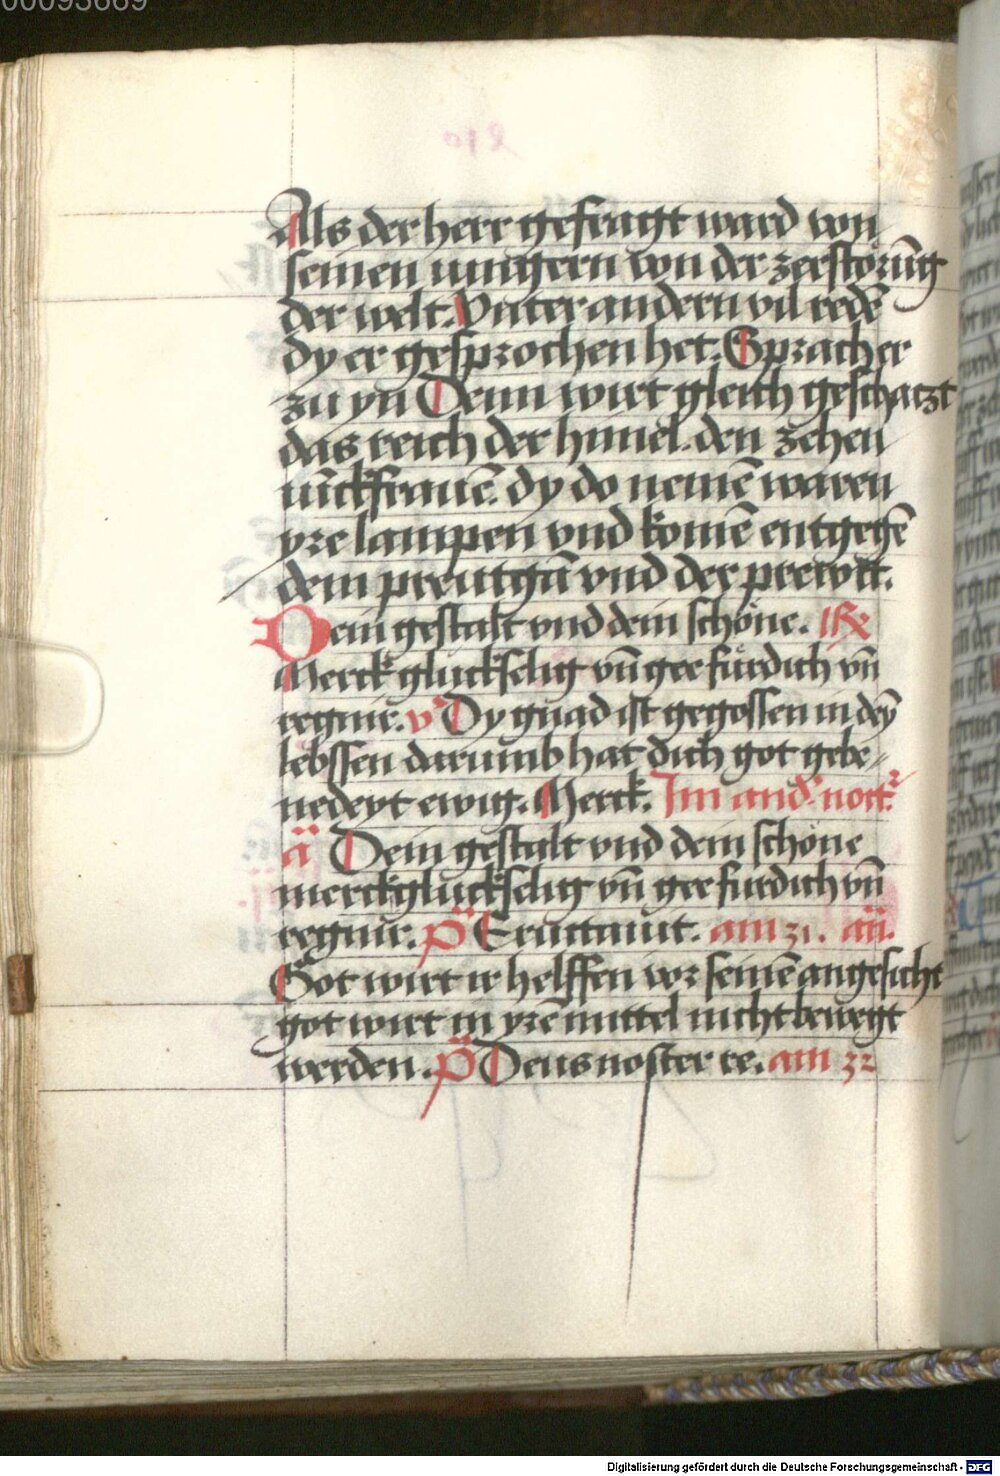 00093669
Als der herr gefragt ward von
seinen iungern von der zerstorūg
der welt. Vnter andern vil redē
dy er gesprochen het. Sprach er
zu yn Denn wirt gleich geschatzt
das reich der himel. den zehen
iūckfrauē. dy do nemē waren
yre lampen vnd komē entgegē
dem preutgā vnd der prewtt.
Dein gestalt vnd dein schöne. R
Merck gluckselig vn̄ gee fürdich vn̄
regnir. v Dy gnad ist gegossen in deȳ
lebssen darumb hat dich got gebe
nedeyt ewig. Merck. Im and nott
ā Dein gestalt vnd dein schöne
merck gluckselig vn̄ gee furdich vn̄
regnir. p̄ Eructauit. am 31. an̄.
Got wirt ir helffen vor seinē angesicht
got wirt in yrē mittel nicht bewegt
werden. p̄ Deus noster re. am 32
Digitalisierung gefördert durch die Deutsche Forschungsgemeinschaft - DFG